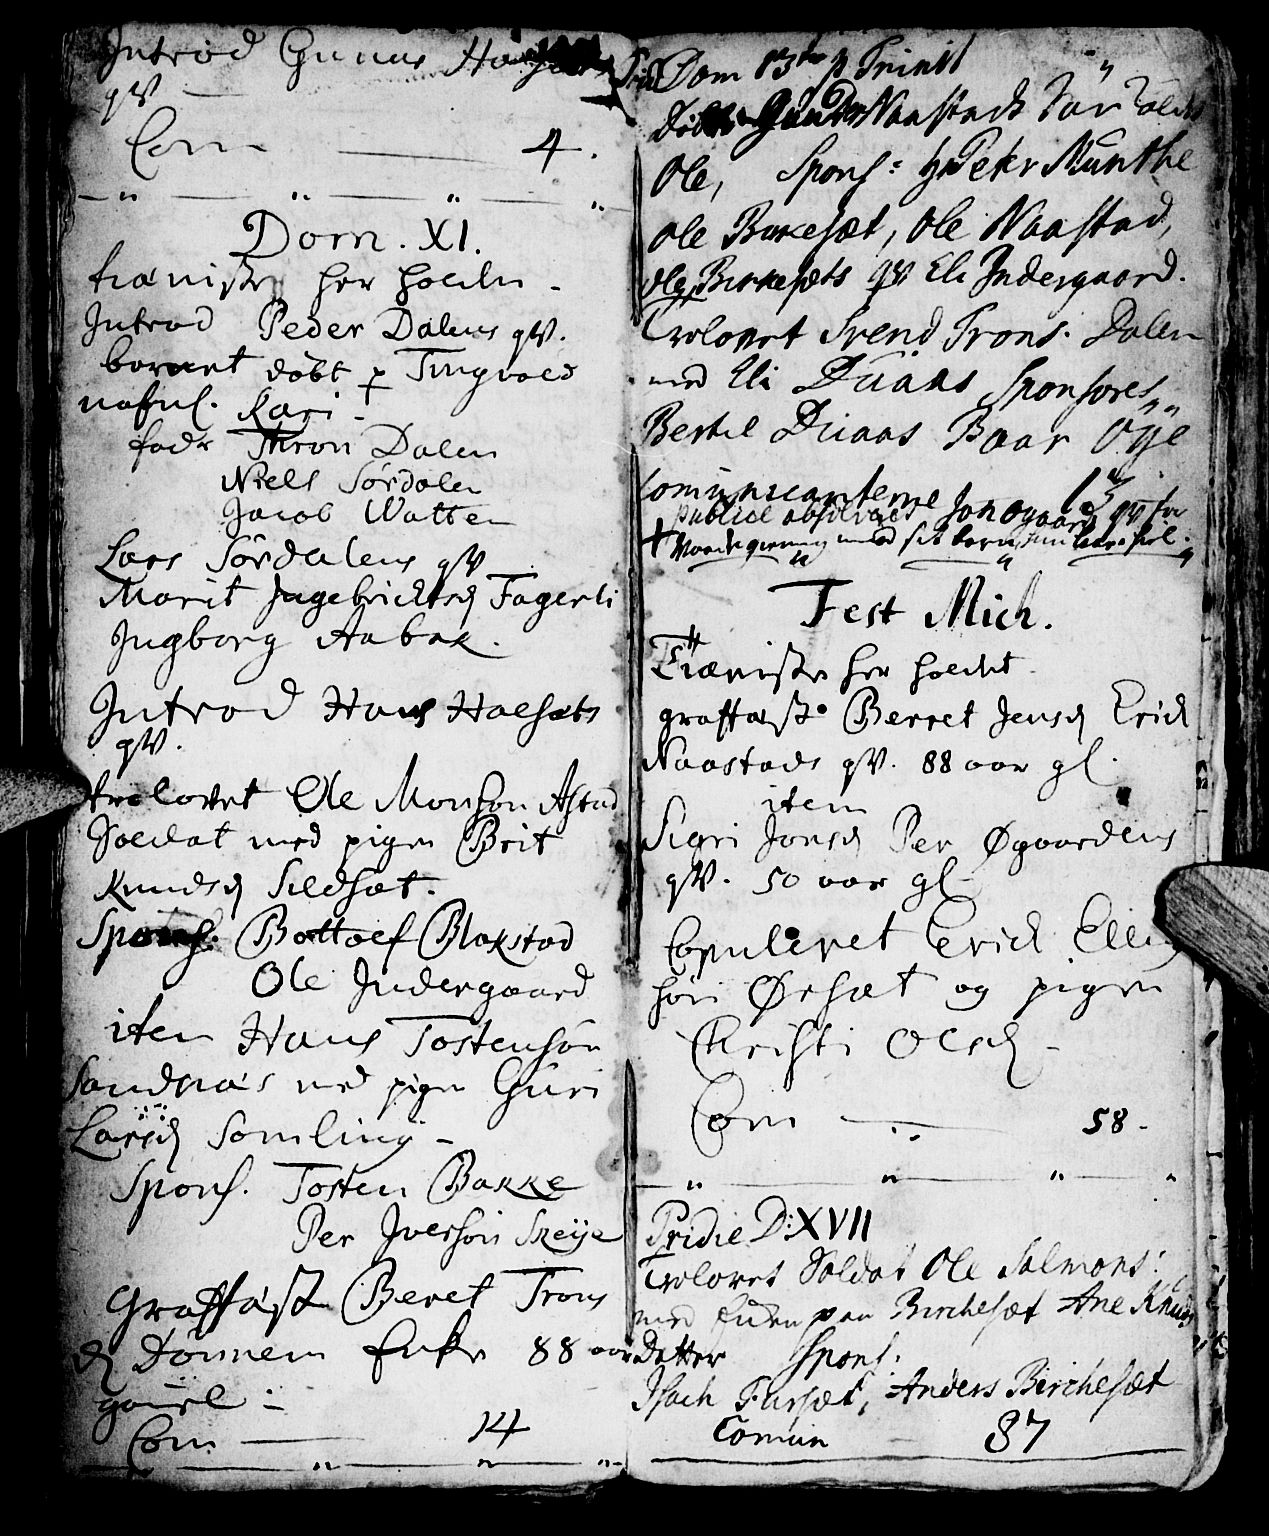 Introd Gunus
qv
Com 4.
Dom. XI.
her holden
Introd Peder Dalens qv.
baruet døbt p Tingvold
nafnl. Kari
fadr Thron Dalen
Niels Sørdalen
Jacob Watten
Lars Sørdalens qv
Marit Ingebrichtsd Fagerli
Ingborg Aabak.
Introd Hans Halsæts
qv.
trolovet Ole Monson Astad
Soldat med pigen Brit
Knudsd Sildsæt.
Spons. Bottolf Blakstad
Ole Indergaard
item Hans Tostensøn
Sandnæs med pigen Guri
Larsd Somling
Spons. Tosten Bakke
Per Iversøn Skeije
Graffæst Beret Trons
d Dønnem Enke 88 aar
gamel
Com 14
Dom 13 p Trinit
Naastads
Ole, Spons: hr Petr Munthe
Ole Birkesæt, Ole Naastad,
Ole Birkesæts qv Eli Indergaard.
Trolovet Svend Trons. Dalen
med Eli Duaas Sponsores
Bertel Duaas Baar Øÿe
Comunicanterne 13
publice absolveret Jon øgaards qv for
med sit barn
Fest Mich.
her holdet
graffæst Berret Jensd Erich
Naastads qv. 88 aar gl.
item
Sigri Jonsd Per Øgaardens
qv. 50 aar gl
Copuleret Erich Elling
søn Ørsæt og pigen
Christi Olsd
Com 58.
Pridie D: XVII
Trolovet Soldat Ole Salmons:
med Enken paa Birchesæt Ane Knuds
Datter Spons:
Isach Fursæt, Anders Birchesæt
Comun 37